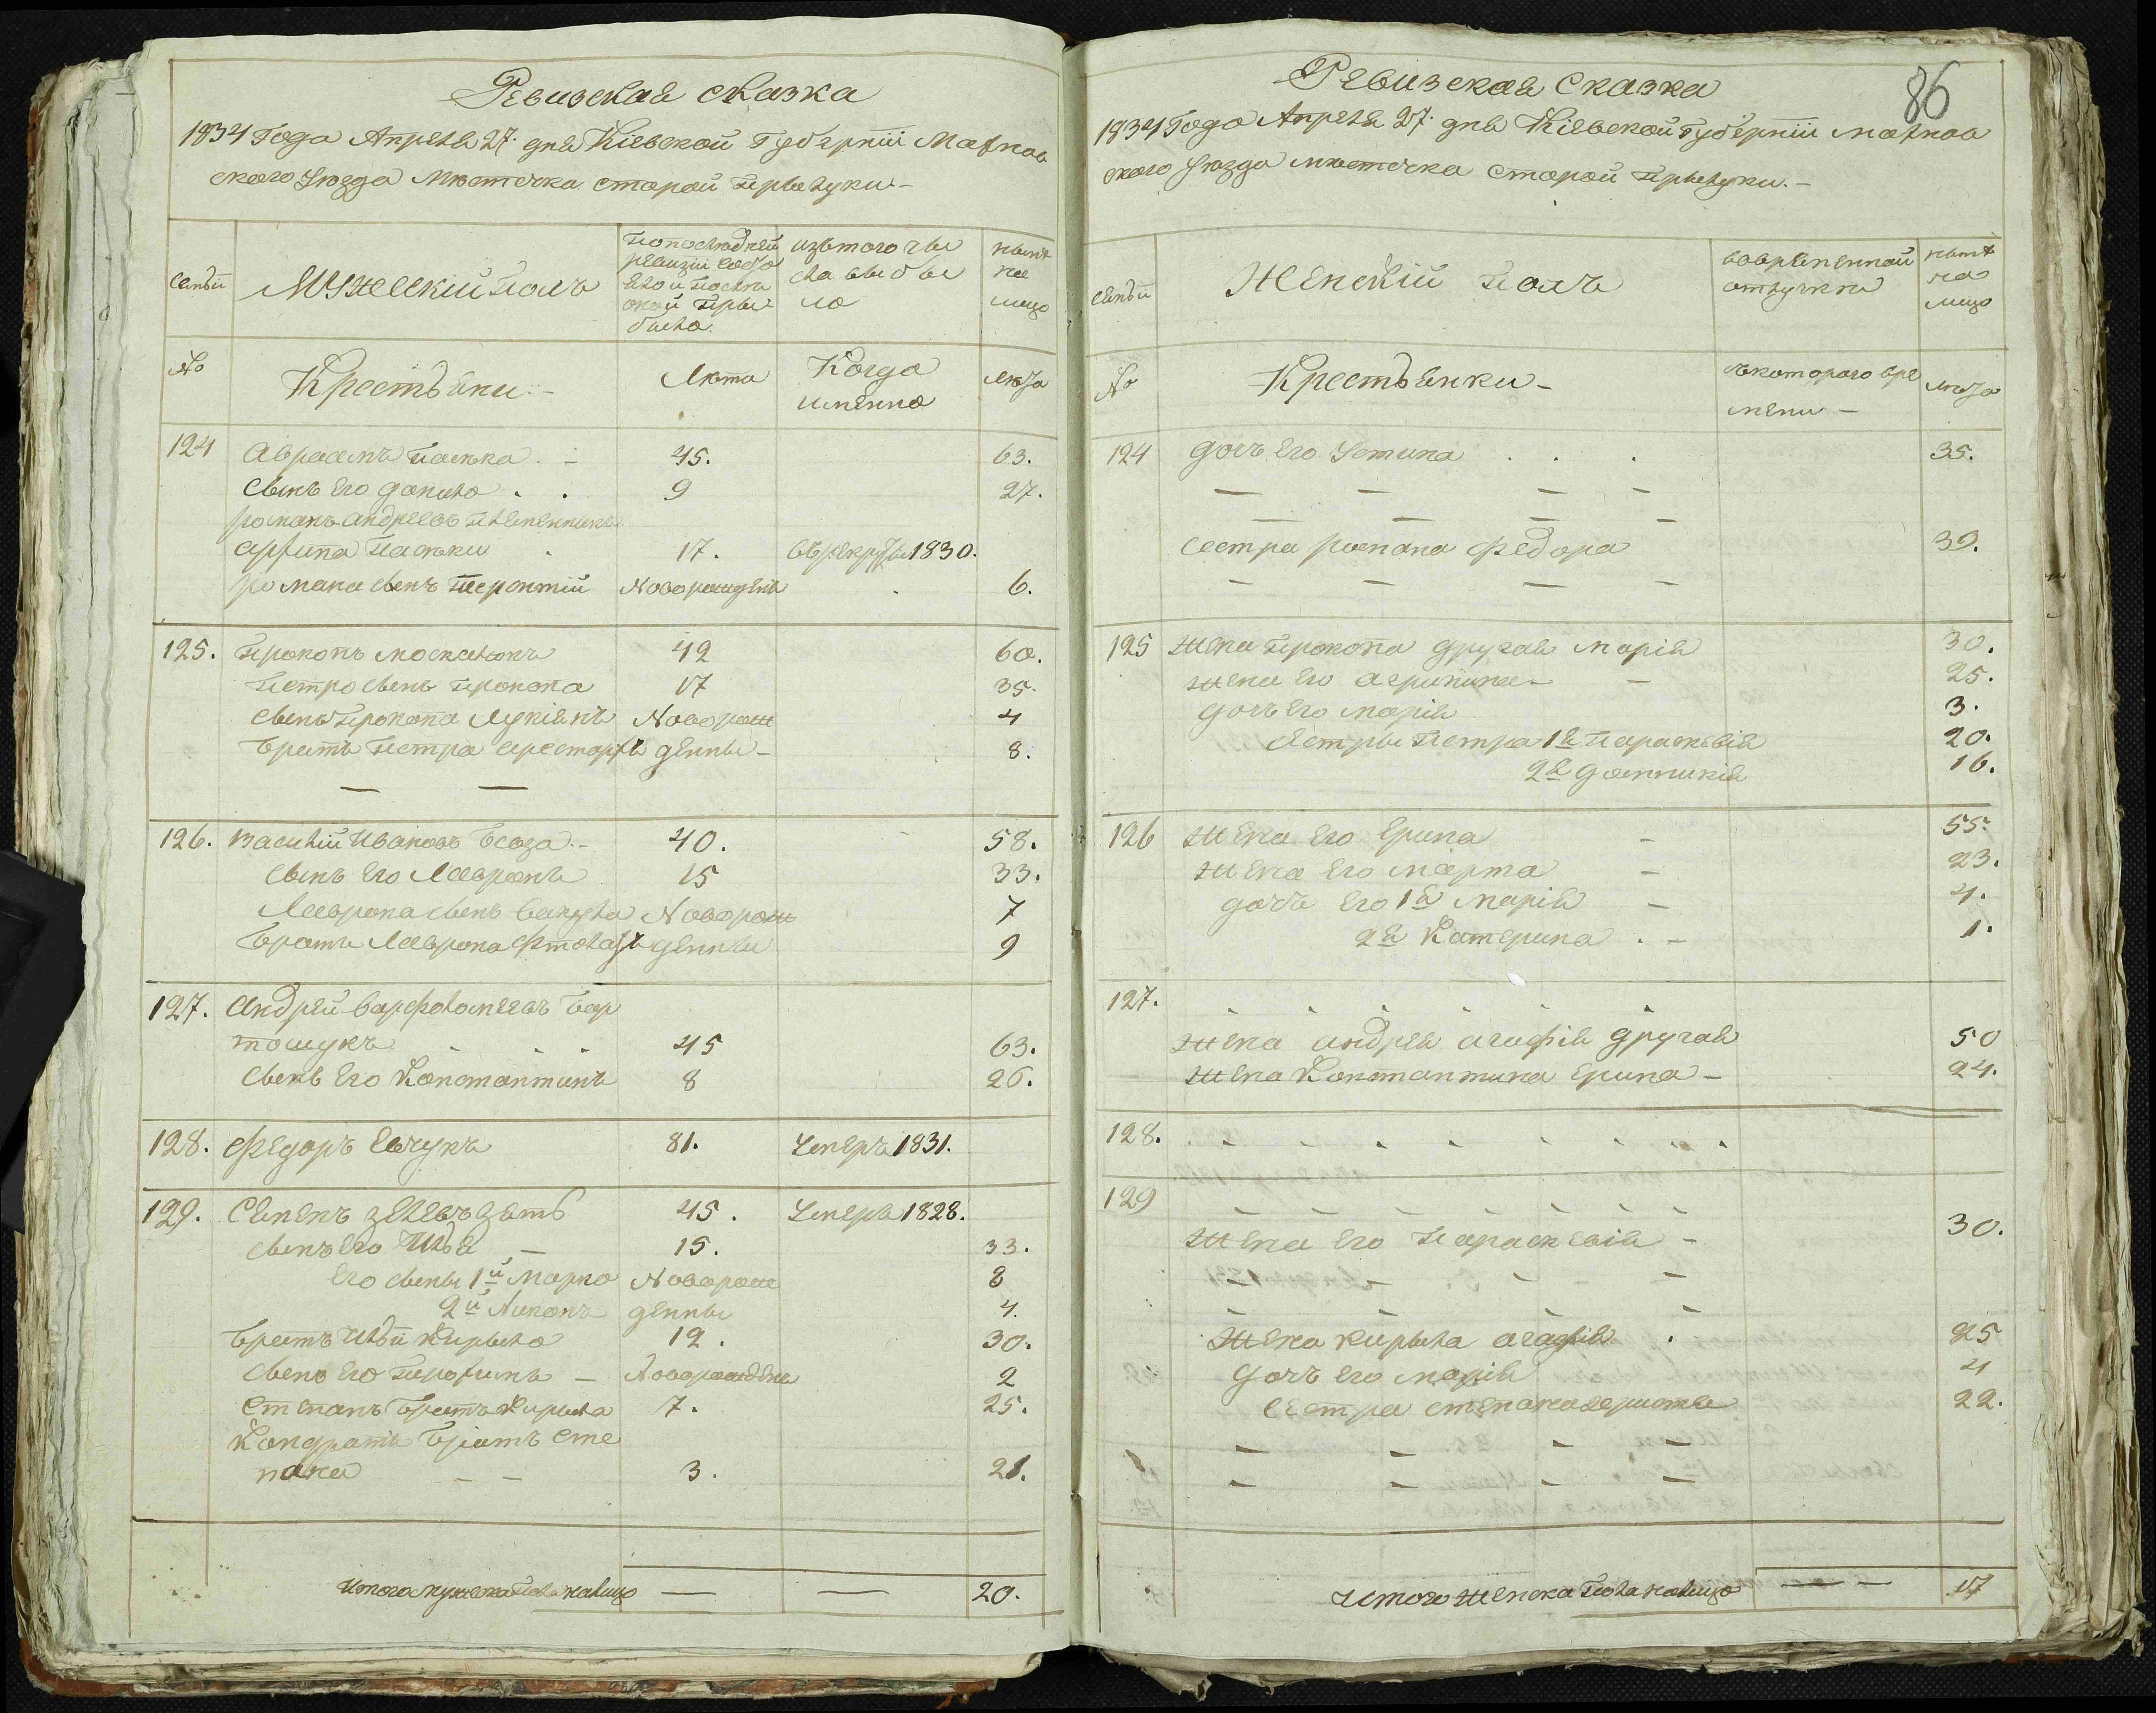 Ревизская сказка
1834 Года Апреля 27. дня Кіевской Губерніи Махнов
ского Уезда местечка старой Прылуки –
семьи
Мужескій полъ
попоследней ревизіи состо яло и после оной прыбыло.
изътого чысла выбыло
ныне на лицо
№
Крестьяни –
Лета
Когда именно
лета
124 Авраамъ Палька 45. 63.
сынъ его данило 9 27.
романъ андреевъ племенникъ
архипа Пальки 17. въ рекруты 1830.
романа сынъ терентій Новорожденъ 6.
125. Прокопъ москалюкъ 42 60.
Петро сынъ прокопа 17 35.
сынъ Прокопа Лукіянъ Новорож 4
братъ Петра арестархъ денны – 8.
126. василій Ивановъ 40. 58.
сынъ его Лавронъ 15 33.
Лаврона сынъ вакула Новорож 7
братъ Лаврона денны 9
127. Андрей варфоломеевъ бар
тошукъ 45 63.
сынъ его Константинъ 8 26.
128. федоръ евчукъ 81. Умеръ 1831.
129. Семенъ зять 45. Умеръ 1828.
сынъ его Илья – 15. 33.
его сыны 1й Марко Новорож 8
2й Никонъ денны 4.
братъ Ильи Кирыло 12. 30.
сынъ его Новорожденъ 2
Степанъ братъ Кирыла 7. 25.
Кондратъ братъ Сте
пана 3. 21.
Итого мужеска пола налицо 20.
86
Ревизская Сказка
1834 Года Апреля 27. дня Кіевской Губерніи махнов
ского Уезда местечка старой Прылуки. –
семьи
Женскій полъ
вовременной отлучки
ныне на лицо
№
Крестьянки –
съкоторого вре мени –
лета
124 дочь его Устина 35.
сестра романа федора 39.
125 жена Прокопа другая марія 30.
жена его агрипина – 25.
дочь его марія 3.
сестры Петра 1я Параскевія 20.
2я домникія 16.
126 жена его Ерина 55.
жена его марта 23.
дочь его 1я марія 4.
2я Катерина 1.
127.
жена андрея агафія другая 50
жена Константина Ерина – 24.
128.
129
жена его Параскевія – 30.
жена кирыла агафія 25
дочь его марія 4
сестра степана 22.
Итого женска пола налицо 17